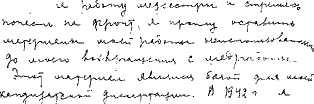 и работу медсестры и
на фронт, я прошу оставить
материалы моей работы неиспользованными
до моего возвращения с
Этот материал явился базой для моей
кандидатской диссертации. В 1942 г. я